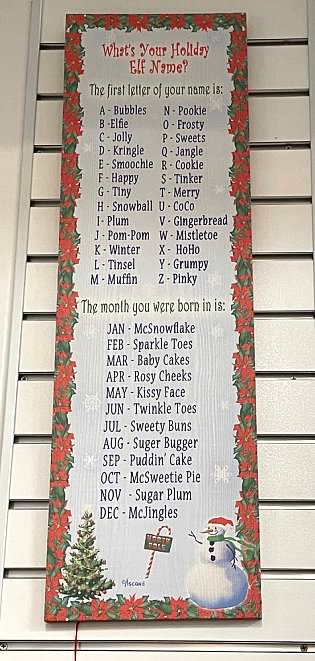 What's Your Holiday
Elf Name?
The first letter of your name is:
A - Bubbles N - Pookie
B - Elfie O - Frosty
C - Jolly P - Sweets
D - Kringle Q - Jangle
E - Smoochie R - Cookie
F - Happy S - Tinker
G - Tiny T - Merry
H - Snowball U - CoCo
I - Plum V - Gingerbread
J - Pom-Pom W - Mistletoe
K - Winter X - HoHo
L - Tinsel Y - Grumpy
M - Muffin Z - Pinky
The month you were born in is:
JAN - McSnowflake
FEB - Sparkle Toes
MAR - Baby Cakes
APR - Rosy Cheeks
MAY - Kissy Face
JUN - Twinkle Toes
JUL - Sweety Buns
AUG - Suger Bugger
SEP - Puddin' Cake
OCT - McSweetie Pie
NOV - Sugar Plum
DEC - McJingles
NORTH
POLE